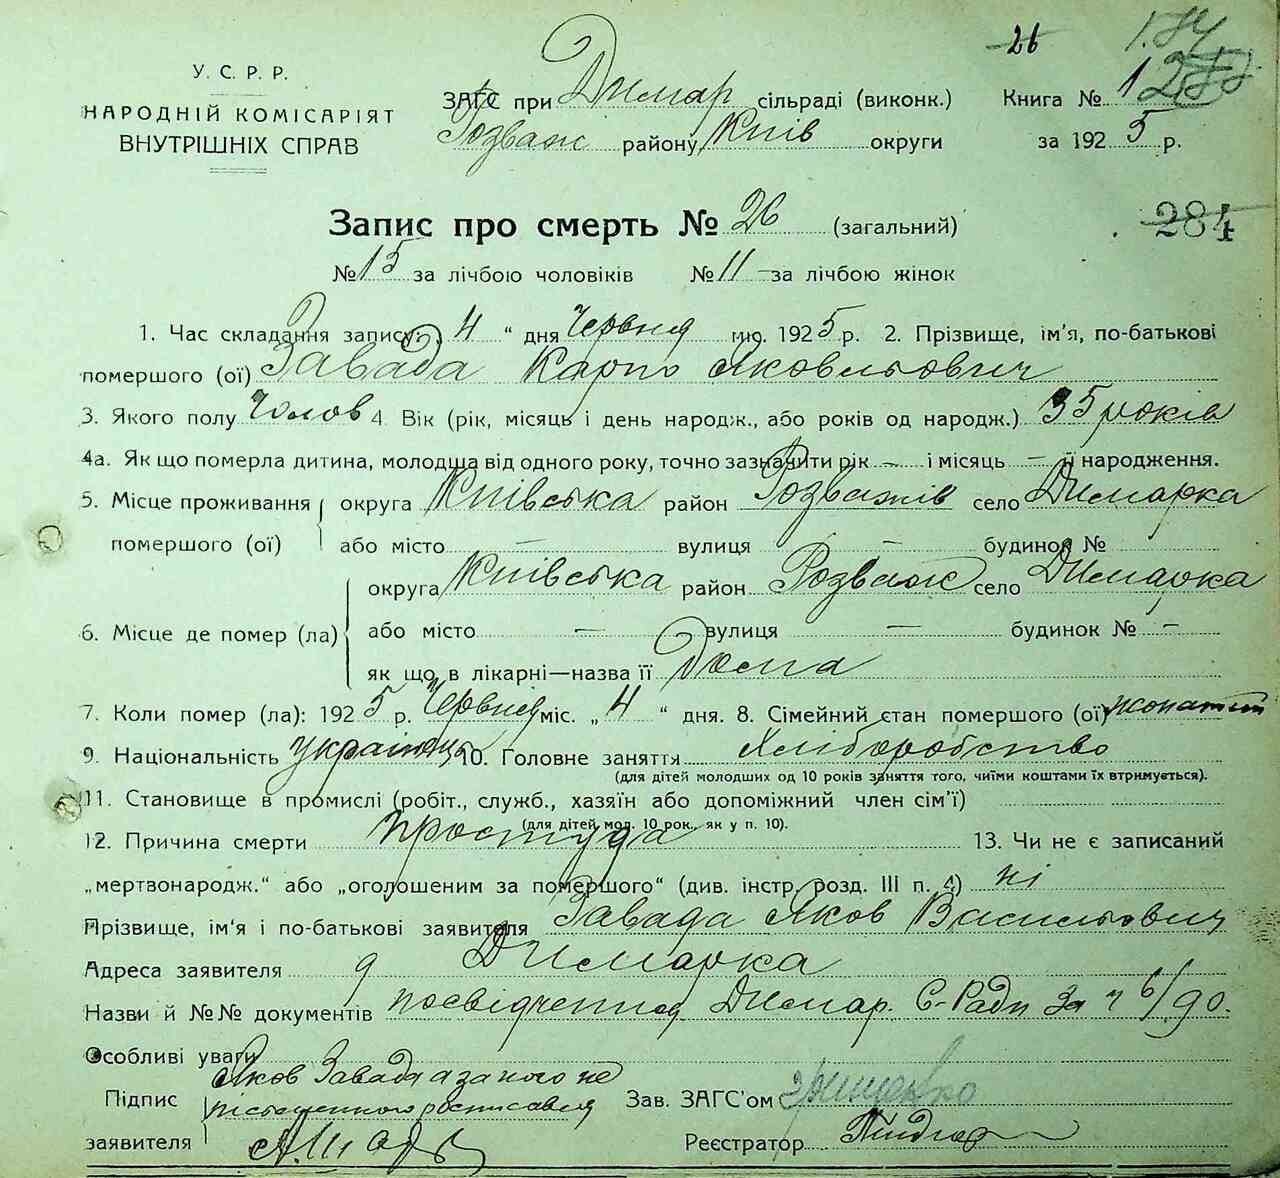 26
У. С. Р. Р.
НАРОДНІЙ КОМІСАРІЯТ
ВНУТРІШНІХ СПРАВ
ЗАГС при Димар сільраді (виконк.) Книга № 1
Розваж району Київ округи за 1925 р.
Запис про смерть № 26 (загальний)
284
№ 15 за лічбою чоловіків № 11 за лічбою жінок
1. Час складання запису: „ 4 “ дня Червня міс. 1925 р. 2. Прізвище, ім'я, по-батькові
помершого (ої) Завада Карпо Яковльович
3. Якого полу Чолов 4. Вік (рік, місяць і день народж., або років од народж.) 35 років
4а. Як що померла дитина, молодша від одного року, точно зазначити рік – і місяць – її народження.
5. Місце проживання округа Київська район Розважів село Димарка
помершого (ої) або місто – вулиця – будинок №
округа Київська район Розваж село Димарка
6. Місце де помер (ла) або місто – вулиця – будинок № –
як що в лікарні—назва її Дома
7. Коли помер (ла): 1925 р. Червня міс. „ 4 “ дня. 8. Сімейний стан помершого (ої) жонатий
9. Національність українець 10. Головне заняття Хліборобство
(для дітей молодших од 10 років заняття того, чиїми коштами їх втримується).
11. Становище в промислі (робіт., служб., хазяїн або допоміжний член сім'ї)
(для дітей мол. 10 рок., як у п. 10).
12. Причина смерти простуда 13. Чи не є записаний
„мертвонародж.“ або „оголошеним за помершого“ (див. інстр. розд. III п. 4) ні
Прізвище, ім'я і по-батькові заявителя Завада Яков Васильович
Адреса заявителя Димарка
Назви й №№ документів посвідчення Димар. С-Ради За ч 6/90.
Особливі уваги
Яков Завада а за його не
письменного росписався
Підпис Зав. ЗАГС'ом
заявителя Реєстратор